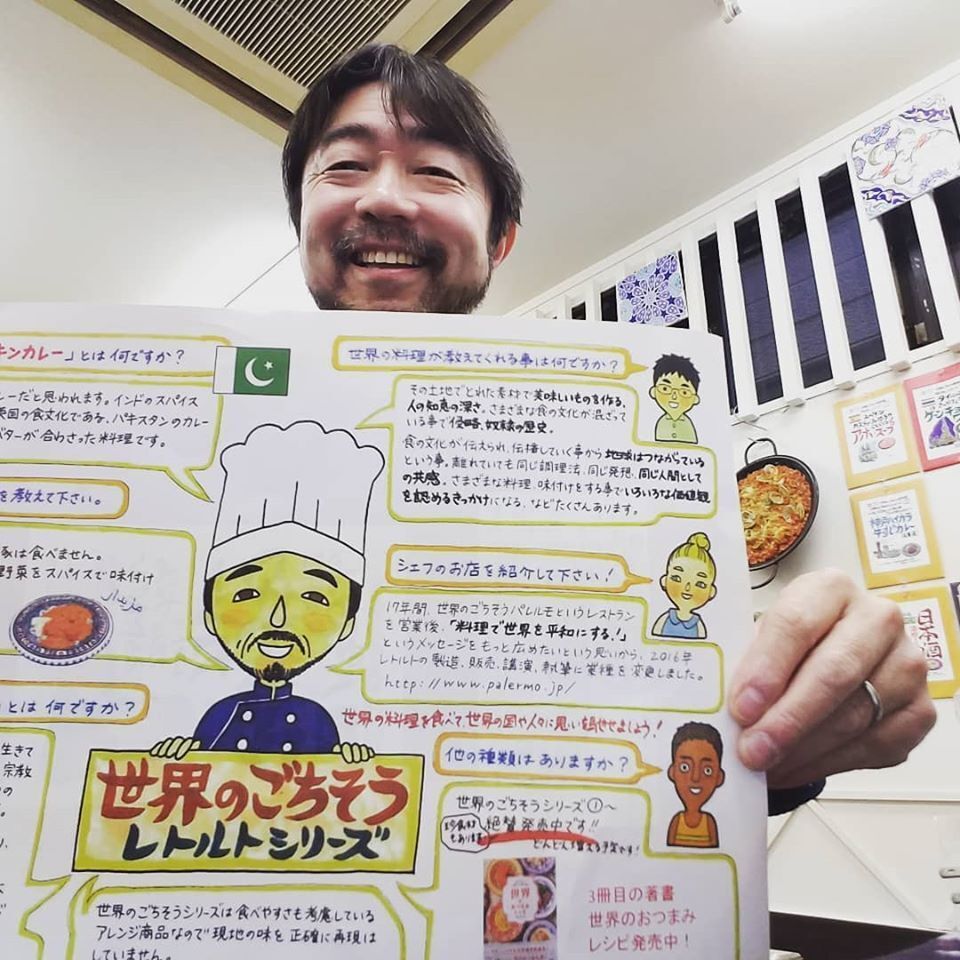 キンカレー」とは何ですか?
ーだと思われます。インドのスパイス
英国の食文化である、パキスタンのカレー
バターが合わさった料理です。
を教えて下さい。
豚は食べません。
野菜をスパイスで味付け
とは何ですか?
生きて
宗教
世界の料理が教えてくれる事は何ですか?
その土地でとれた素材で美味しいものを作る、
人の知恵の深さ。さまざまな食の文化が混ざって
いる事で侵略、奴隷の歴史。
食の文化が伝えられ、伝播していく事から地球はつながっている
という事。離れていても同じ調理法、同じ発想、同じ人間として
の共感。さまざまな料理、味付けをする事でいろいろな価値観
を認めるきっかけになる、などたくさんあります。
シェフのお店を紹介して下さい!
17年間、世界のごちそうパレルモというレストラン
を営業後、「料理で世界を平和にする!」
というメッセージをもっと広めたいという思いから、2016年
レトルトの製造、販売、講演、執筆に業種を変更しました。
http://www.palermo.jp/
世界の料理を食べて、世界の国や人々に思いを馳せましょう!
他の種類はありますか?
世界のごちそうシリーズ①〜
絶賛発売中です!!
どんどん増える予定です!
世界のごちそう
レトルトシリーズ
世界のごちそうシリーズは食べやすさも考慮している
アレンジ商品なので現地の味を正確に再現は
していません。
世界
3冊目の著書
世界のおつまみ
レシピ発売中!